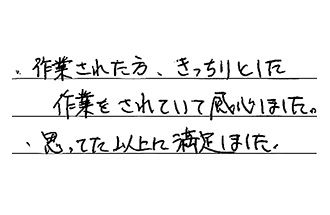 ・作業された方、きっちりとした
作業をされていて感心しました。
・思ってた以上に満足しました。